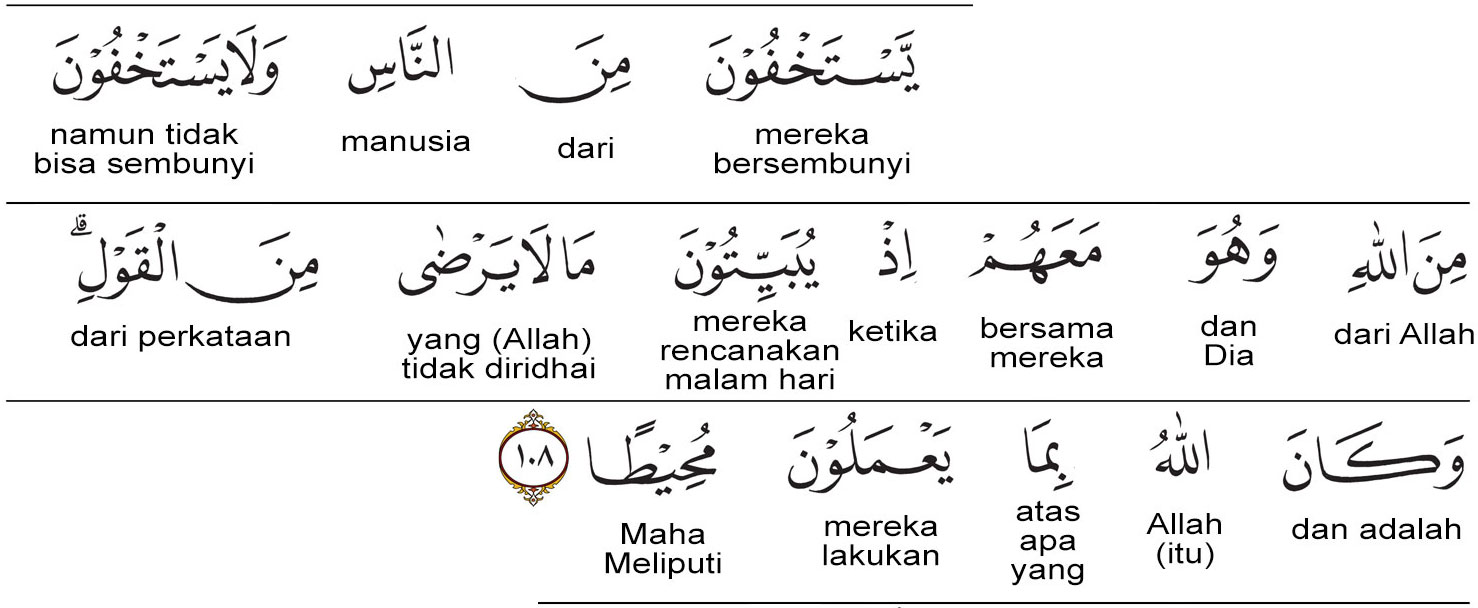 يَّسْتَخْفُوْنَ مِنَ النَّاسِ وَلَا يَسْتَخْفُوْنَ
mereka bersembunyi
dari
manusia
namun tidak bisa sembunyi
مِنَ اللّٰهِ وَهُوَ مَعَهُمْ اِذْ يُبَيِّتُوْنَ مَا لَا يَرْضٰى مِنَ الْقَوْلِۗ
dari Allah
dan Dia
bersama mereka
ketika
mereka rencanakan malam hari
yang (Allah) tidak diridhai
dari perkataan
وَكَانَ اللّٰهُ بِمَا يَعْمَلُوْنَ مُحِيْطًا ١٠٨
dan adalah
Allah (itu)
atas apa yang
mereka lakukan
Maha Meliputi